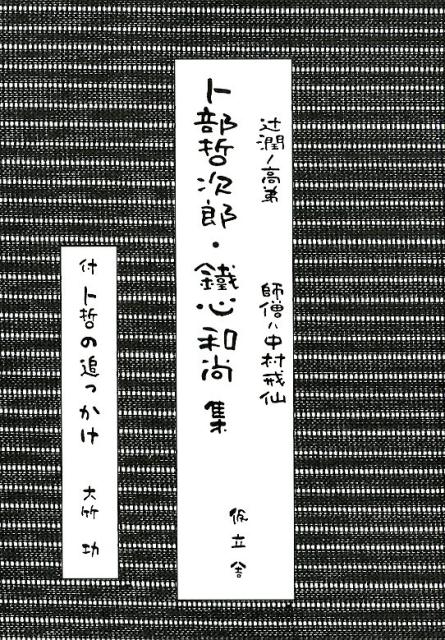 辻潤ノ高弟　師僧ハ中村戒仙
卜部哲次郎・鐵心和尚集
仮立舎
付 卜哲の追っかけ　大竹功